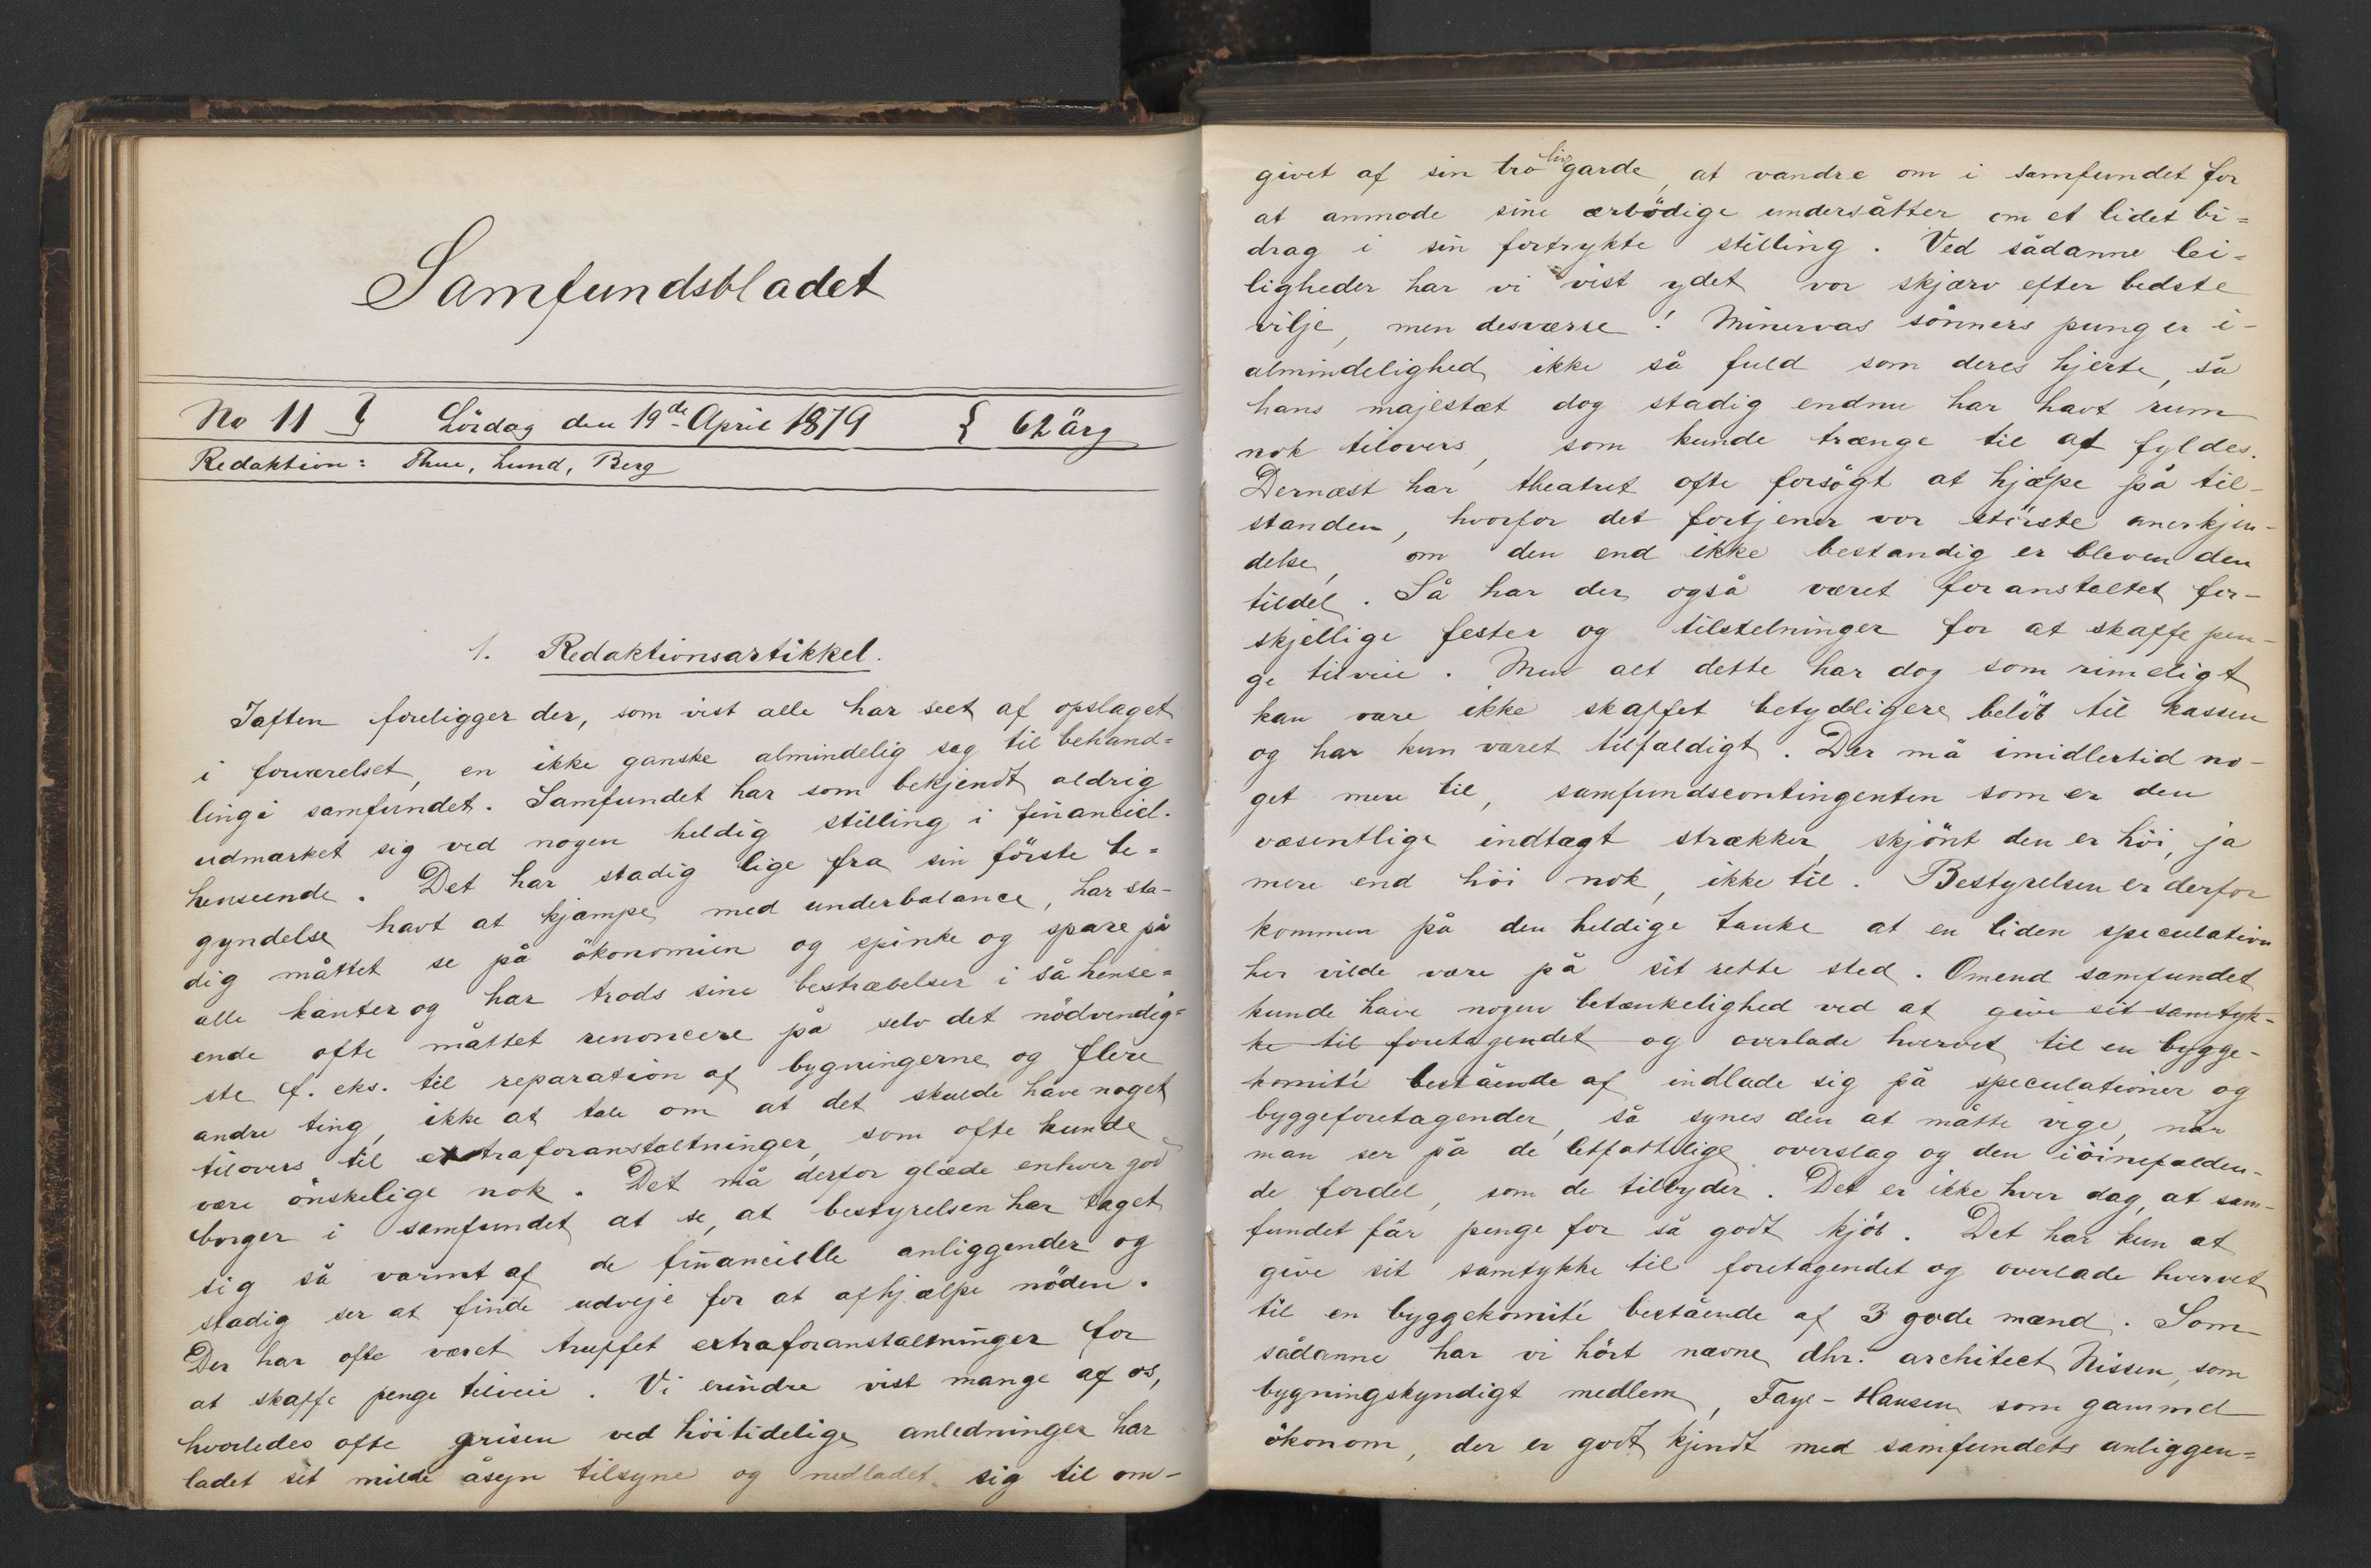 Samfundsbladet
No 11 } Lördag den 19de April 1879 { 62 årg
Redaktion: Thue, Lund, Berg
1. Redaktionsartikkel.
Iaften foreligger der, som vist alle har seet af opslaget
i forværelset, en ikke ganske almindelig sag til behand=
ling i samfundet. Samfundet har som bekjendt aldrig
udmærket sig ved nogen heldig stilling i financiel.
henseende. Det har stadig lige fra sin förste be=
gyndelse havt at kjæmpe med underbalance, har sta-
dig måttet se på ökonomien og spinke og spare på
alle kanter og har trods sine bestræbelser i så hense=
ende ofte måttet renoncere på selv det nödvendig=
ste f. eks. til reparation af bygningerne og flere
andre ting, ikke at tale om at det skulde have noget
tilovers til extraforanstaltninger, som ofte kunde
være önskelige nok. Det må derfor glæde enhver god
borger i samfundet at se, at bestyrelsen har taget
sig så varmt af de financielle anliggender og
stadig ser at finde udveje for at afhjælpe nöden.
Der har ofte været truffet extraforanstaltninger for
at skaffe penge tilveie. Vi erindre vist mange af os,
hvorledes ofte grisen ved höitidelige anledninger har
ladet sit milde åsyn tilsyne og nedladet sig til om-
givet af sin tro livgarde, at vandre om i samfundet for
at anmode sine ærbödige undersåtter om et lidet bi=
drag i sin fortrykte stilling. Ved sådanne lei=
ligheder har vi vist ydet vor skjærv efter bedste
vilje, men desværre! Minervas sönners pung er i-
almindelighed ikke så fuld som deres hjerte, så
hans majestæt dog stadig endnu har havt rum
nok tilovers, som kunde trænge til at fyldes.
Dernæst har theatret ofte forsögt at hjælpe på til-
standen, hvorfor det fortjener vor störste anerkjen-
delse, om den end ikke bestandig er bleven den
tildel. Så har der også været foranstaltet for-
skjellige fester og tilstelninger for at skaffe pen-
ge tilveie. Men alt dette har dog som rimeligt
kan være ikke skaffet betydeligere belöb til kassen
og har kun været tilfældigt. Der må imidlertid no-
get mere til, samfundscontingenten som er den
væsentlige indtægt strækker, skjönt den er höi, ja
mere end höi nok, ikke til. Bestyrelsen er derfor
kommen på den heldige tanke at en liden speculation
her vilde være på sit rette sted. Omend samfundet
kunde have nogen betænkelighed ved at give sit samtyk-
ke til foretagendet og overlade hvervet til en bygge-
komité bestående af indlade sig på speculationer og
byggeforetagender, så synes den at måtte vige, når
man ser på de letfattelige overslag og den iöinefalden-
de fordel, som de tilbyder. Det er ikke hver dag, at sam-
fundet får penge for så godt kjöb. Det har kun at
give sit samtykke til foretagendet og overlade hvervet
til en byggekomité bestående af 3 gode mænd. Som
sådanne har vi hört nævne dhr. architect Nissen, som
bygningskyndigt medlem, Faye-Hansen som gammel
ökonom, der er godt kjendt med samfundets anliggen=